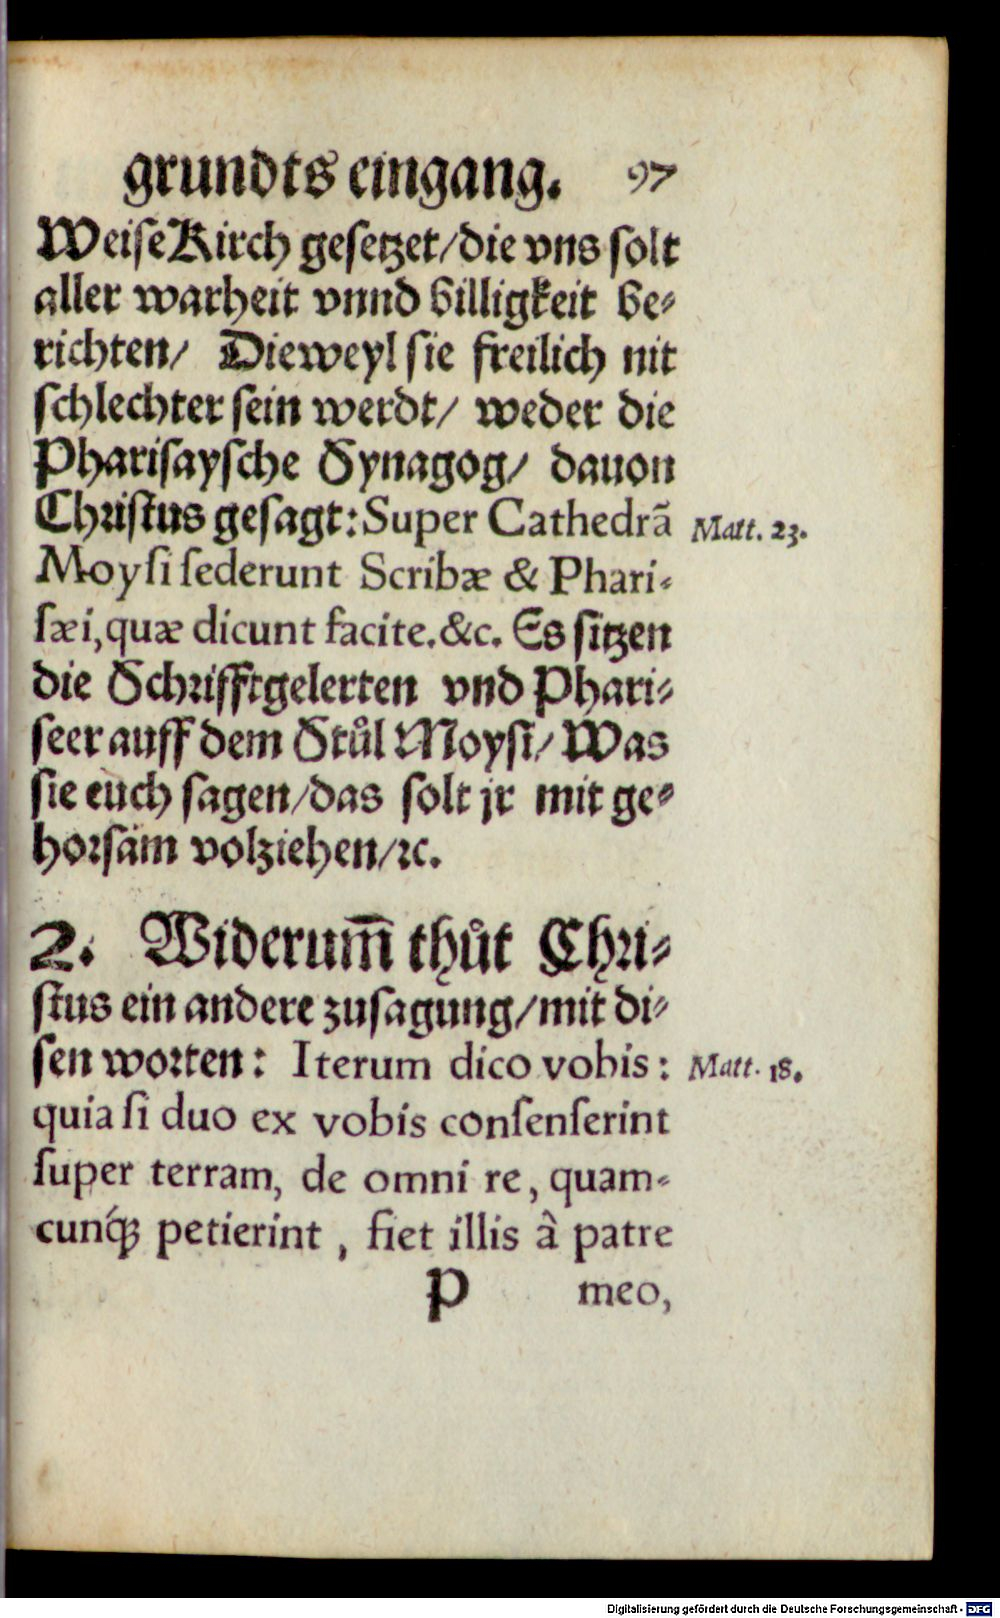 grundts eingang. 97
Weise Kirch gesetzet/die vns solt
aller warheit vnnd billigkeit be⸗
richten/ Dieweyl sie freilich nit
schlechter sein werdt/ weder die
Pharisaysche Synagog/ dauon
Christus gesagt: Super Cathedrã Matt. 23.
Moysi sederunt Scribæ & Phari⸗
sæi, quæ dicunt facite. &c. Es sitzen
die Schrifftgelerten vnd Phari⸗
seer auff dem Stůl Moysi/ Was
sie euch sagen/das solt jr mit ge⸗
horsam volziehen/ꝛc.
2. Widerum̃ thůt Chri⸗
stus ein andere zusagung/mit di⸗
sen worten: Iterum dico vobis: Matt. 18.
quia si duo ex vobis consenserint
super terram, de omni re, quam⸗
cunq́ꝫ petierint, fiet illis à patre
P meo,
Digitalisierung gefördert durch die Deutsche Forschungsgemeinschaft - DFG